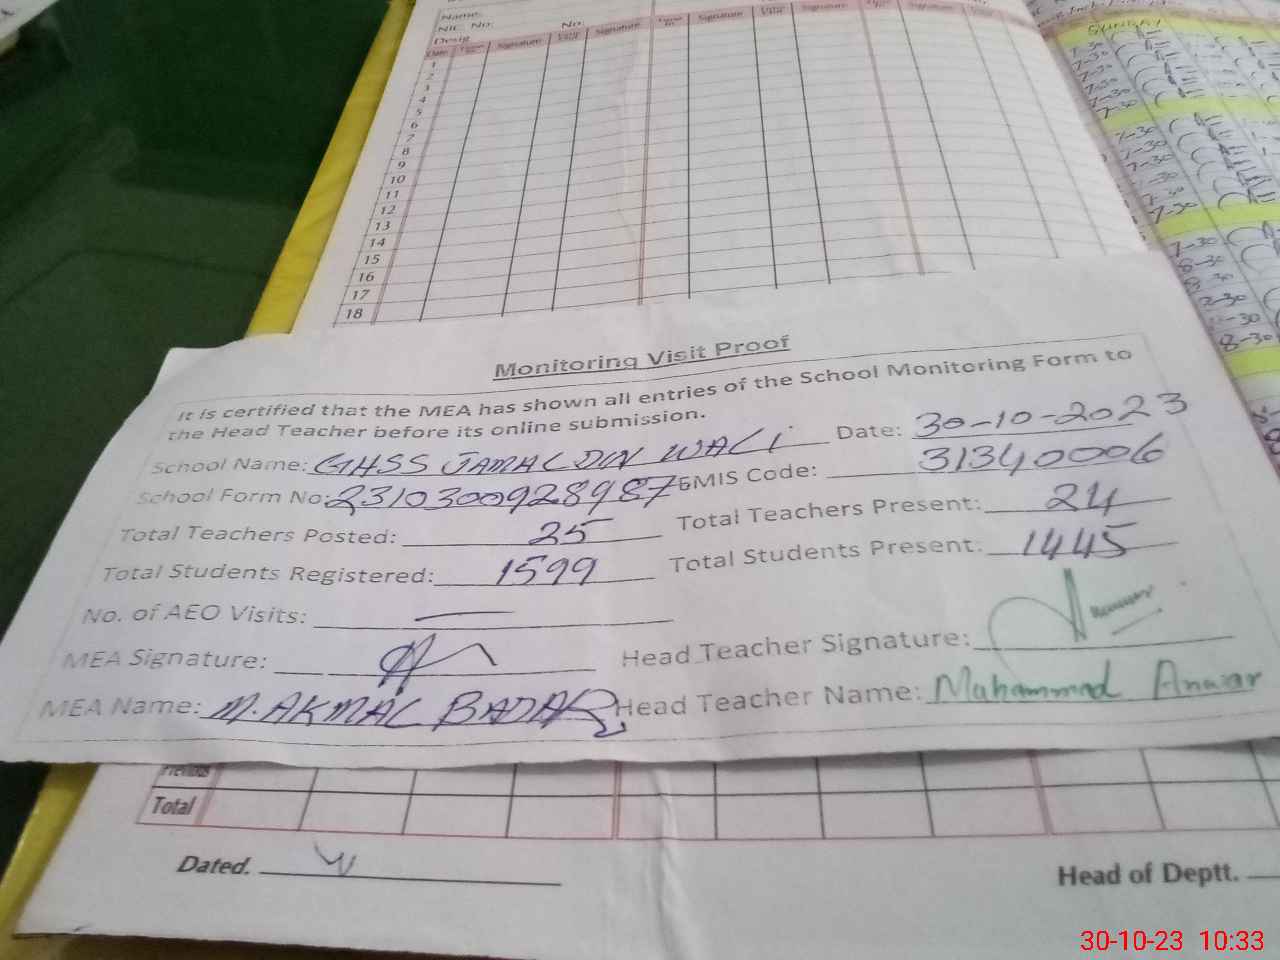 Name:
NIC. No. No.
Desig
Date Signature Signature Signature Signature Signature
1
2
3
4
5
6
7
8
9
10
11
12
13
14
15
16
17
18
SUNDAY
7-30
7-30
7-30
7-30
7-30
7-30
7-30
8-30
Monitoring Visit Proof
It is certified that the MEA has shown all entries of the School Monitoring Form to
the Head Teacher before its online submission.
School Name: GHSS JAMAL DIN WALI Date: 30-10-2023
School Form No: 2310300928987 EMIS Code: 31340006
Total Teachers Posted: 25 Total Teachers Present: 24
Total Students Registered: 1599 Total Students Present: 1445
No. of AEO Visits: —
MEA Signature: Head Teacher Signature:
MEA Name: M. AKMAL BADAR Head Teacher Name: Muhammad Anwar
Previous
Total
Dated. Head of Deptt.
30-10-23 10:33